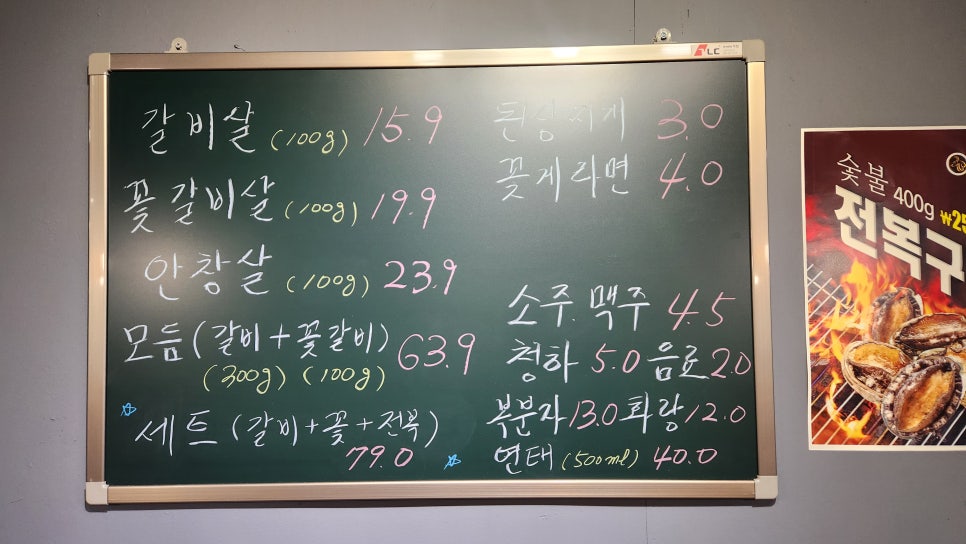 갈비살 (100g) 15.9
꽃갈비살 (100g) 19.9
안창살 (100g) 23.9
모듬 (갈비+꽃갈비) 63.9
(300g) (100g)
세트 (갈비+꽃+전복)
79.0
된장찌개 3.0
꽃게라면 4.0
소주. 맥주 4.5
청하 5.0 음료 2.0
복분자 13.0 화랑 12.0
연태 (500ml) 40.0
LC
숯불 400g ₩25
전복구